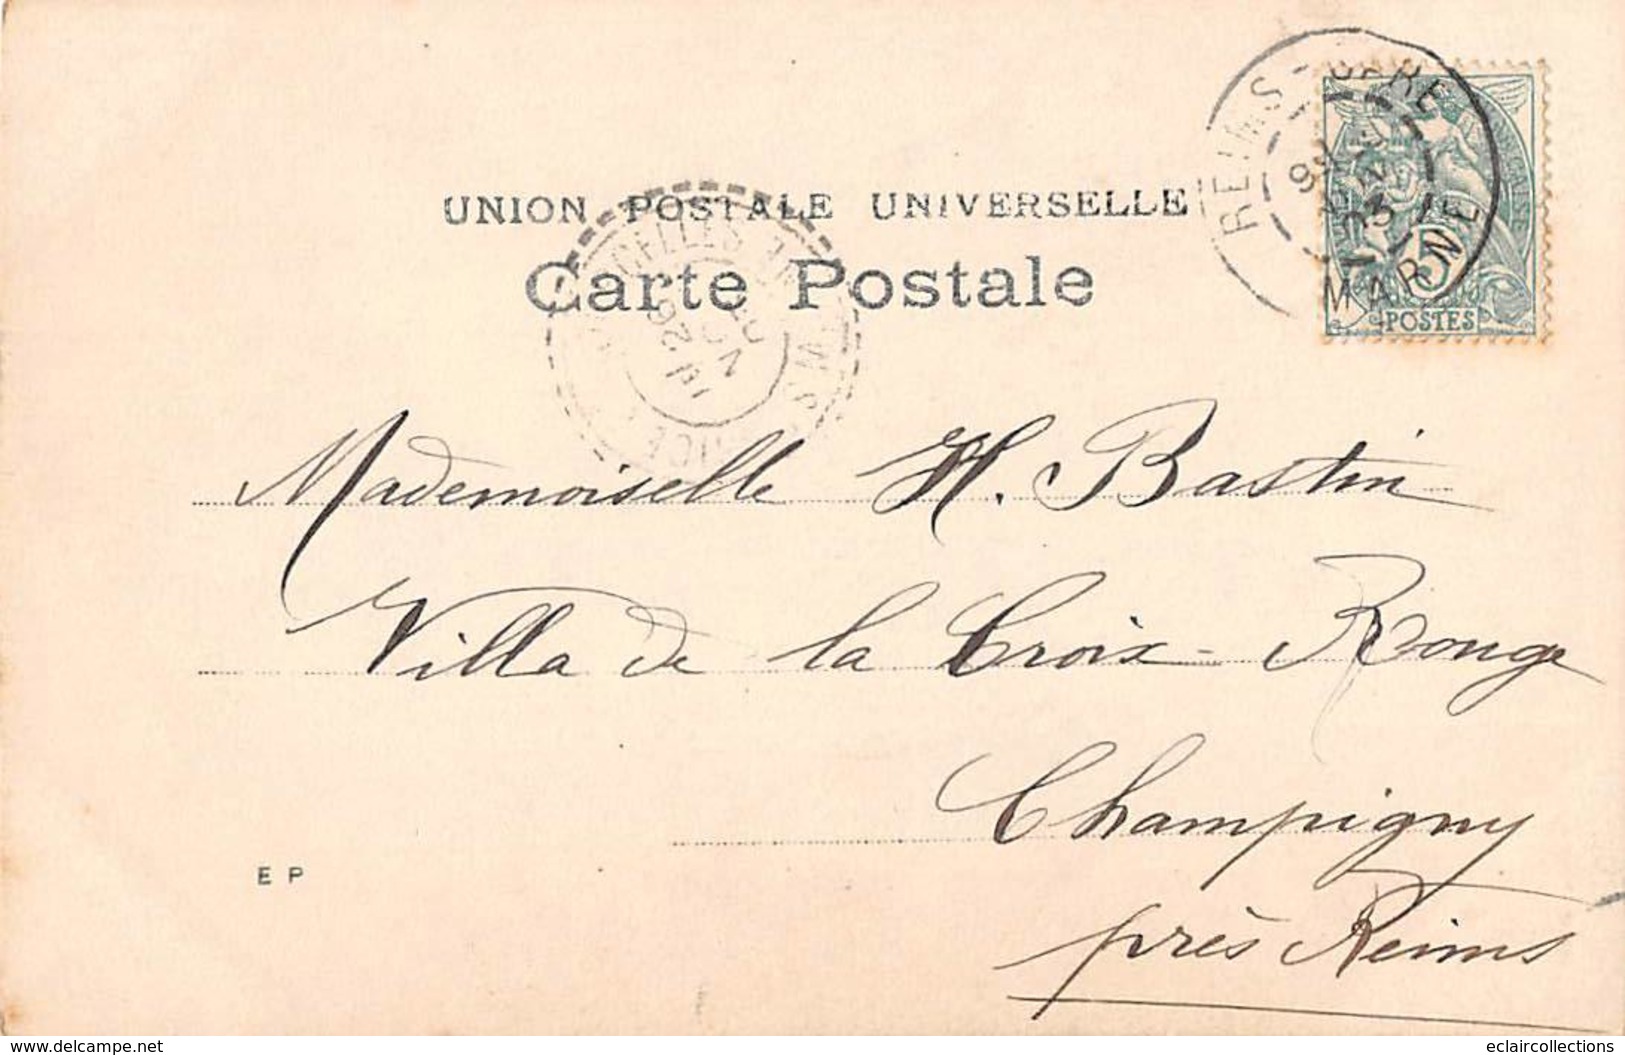 UNION POSTALE UNIVERSELLE
Carte Postale
REIMS - GARE
03
MARNE
5
POSTES
Mademoiselle H. Bastin
Villa de la Croix-Rouge
Champigny
près Reims
E P
www.delcampe.net
eclaircollections